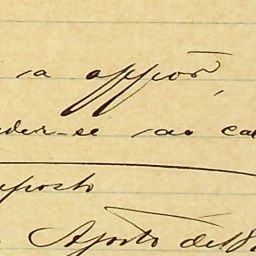 a oppor
der-se ao ca
posto
Agosto de 18